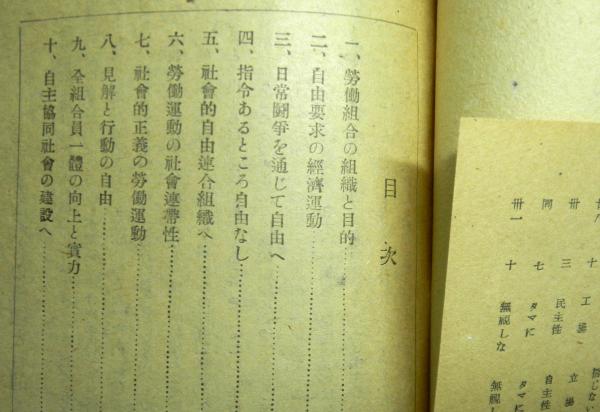 廿八
卅
同
卅一
十
三
七
十
工場
民主性
タマに
無視しな
信じない
立場
自主性
タマに
無視しな
目次
一、勞働組合の組織と目的
二、自由要求の經濟運動
三、日常鬪爭を通じて自由へ
四、指令あるところ自由なし
五、社會的自由連合組織へ
六、勞働運動の社會連帶性
七、社會的正義の勞働運動
八、見解と行動の自由
九、全組合員一體の向上と實力
十、自主協同社會の建設へ